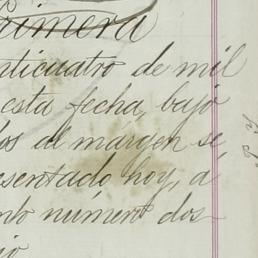 Primera
nticuatro de mil
esta fecha, bajo
dos al margen se
esentado hoy, a
ento número dos-